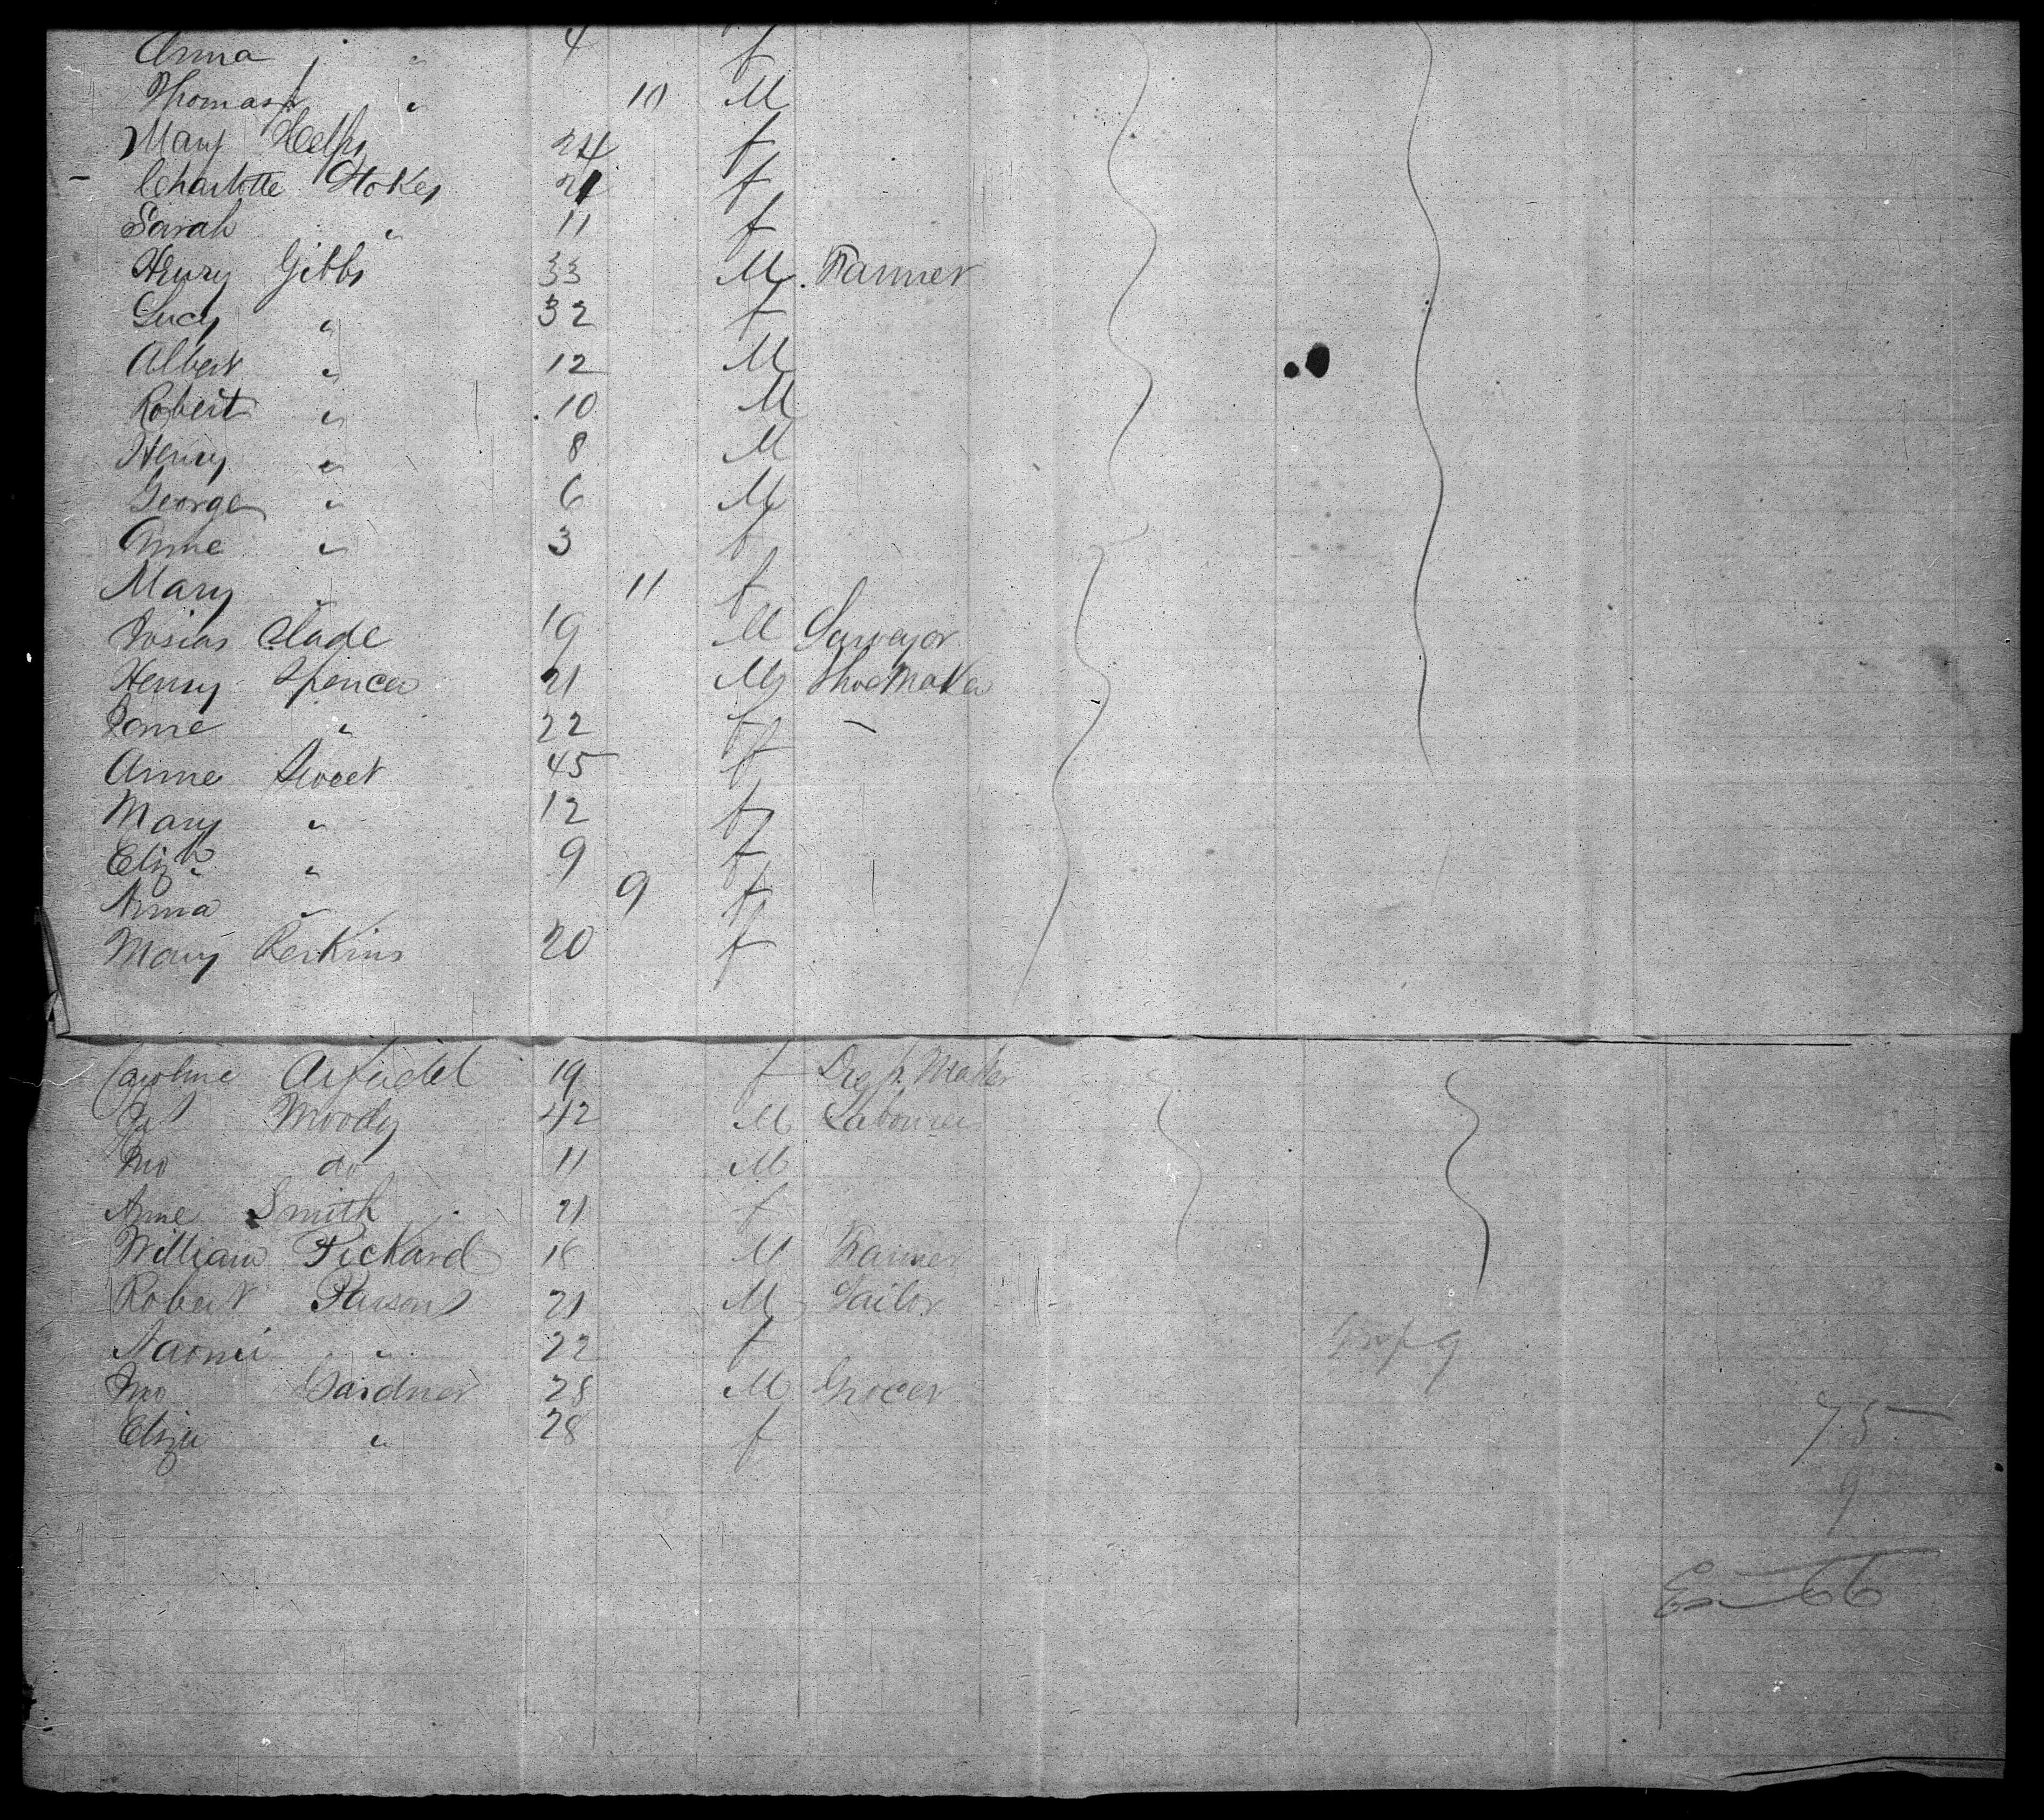 Anna " 4 f
Thomas " 10 M
Mary Phelps 24 f
Charlotte Stokes 21 f
Sarah " 11 f
Henry Gibbs 33 M Farmer
Lucy " 32 f
Albert " 12 M
Robert " 10 M
Henry " 8 M
George " 6 M
Anne " 3 f
Mary " 11 f
Josias Slade 19 M Surveyor
Henry Spencer 21 M Shoe Maker
Jane " 22 f
Anne Sweet 45 f
Mary " 12 f
Elizh " 9 f
Anna " 9 f
Mary Perkins 20 f
Caroline 19 f Dress Maker
Jas Moody 42 M Labourer
Jno do 11 M
Anne Smith 21 f
William Pickard 18 M Farmer
Robert Parsons 21 M Tailor
Naomi " 22 f
Jno Gardner 28 M Grocer
Eliza " 28 f
75
9
66